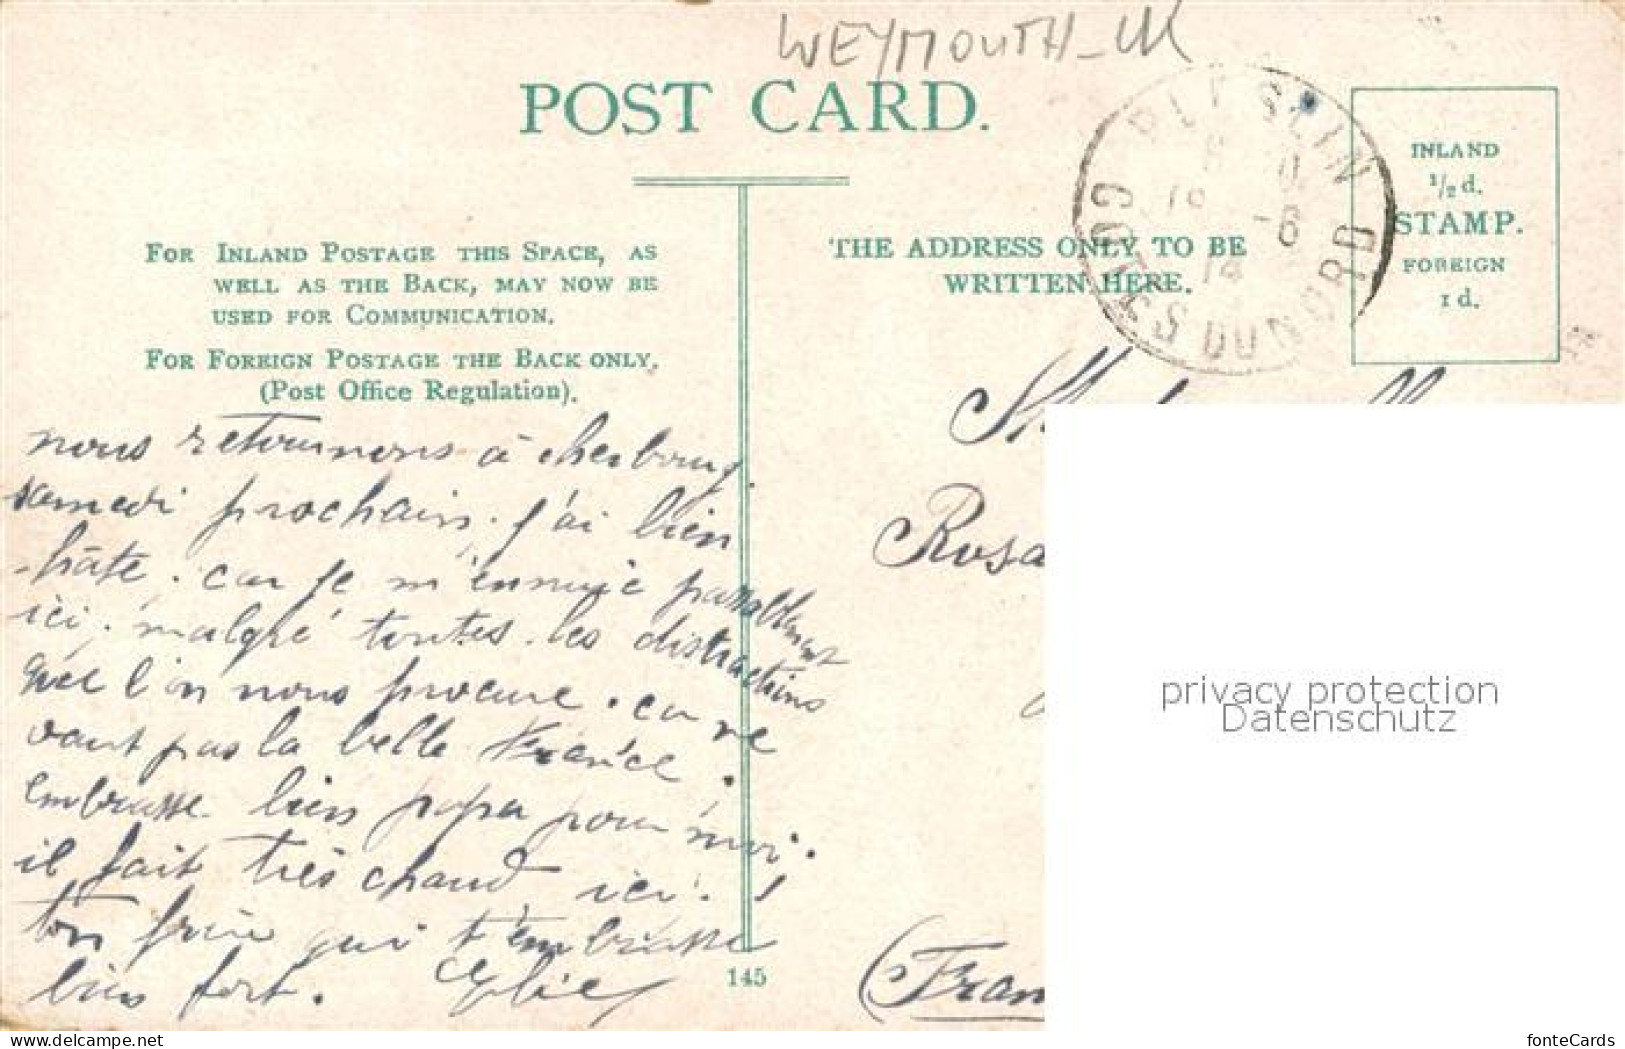 WEYMOUTH_UK
POST CARD.
FOR INLAND POSTAGE THIS SPACE, AS
WELL AS THE BACK, MAY NOW BE
USED FOR COMMUNICATION.
FOR FOREIGN POSTAGE THE BACK ONLY.
(Post Office Regulation).
THE ADDRESS ONLY TO BE
WRITTEN HERE.
INLAND
1/2 d.
STAMP.
FOREIGN
1 d.
CÔTES DU NORD
nous retournons à cherbourg
samedi prochain. j'ai bien
hâte. car je m'ennuie passablement
ici. malgré toutes les distractions
que l'on nous procure. ça ne
vaut pas la belle France.
embrasse bien papa pour moi.
il fait très chaud ici. !
ton frère qui t'embrasse
bien fort.
Rosa
(Fran
145
privacy protection
Datenschutz
www.ansichtskarten-center.de
fonteCards